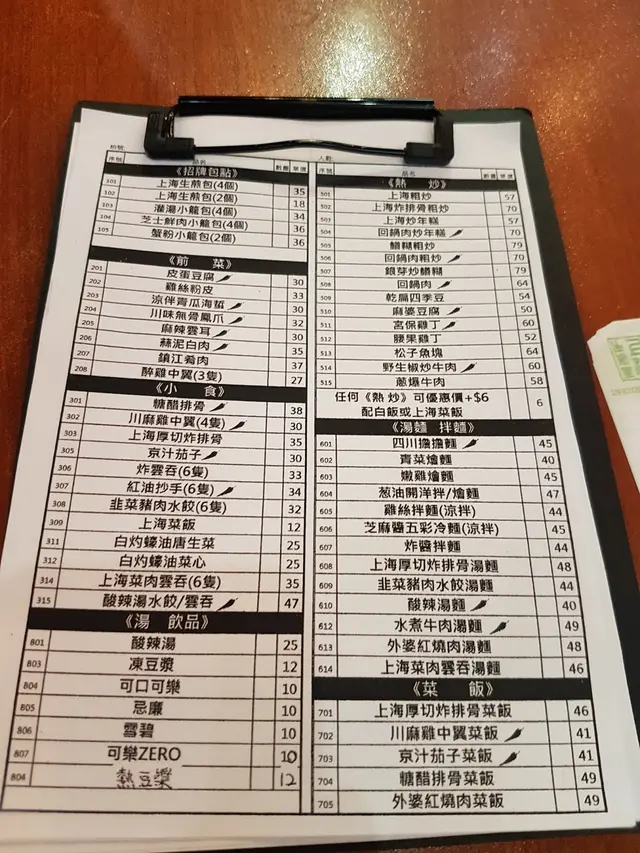 枱號
序號 品名 數量 單價
《招牌包點》
101 上海生煎包(4個) 35
102 上海生煎包(2個) 18
103 灌湯小籠包(4個) 34
104 芝士鮮肉小籠包(4個) 36
105 蟹粉小籠包(2個) 36
《前 菜》
201 皮蛋豆腐 30
202 雞絲粉皮 33
203 涼伴青瓜海蜇 30
204 川味無骨鳳爪 32
205 麻辣雲耳 30
206 蒜泥白肉 35
207 鎮江肴肉 37
208 醉雞中翼(3隻) 27
《小 食》
301 糖醋排骨 38
302 川麻雞中翼(4隻) 30
303 上海厚切炸排骨 35
305 京汁茄子 30
306 炸雲吞(6隻) 33
307 紅油抄手(6隻) 34
308 韭菜豬肉水餃(6隻) 32
309 上海菜飯 12
311 白灼蠔油唐生菜 25
312 白灼蠔油菜心 25
314 上海菜肉雲吞(6隻) 35
315 酸辣湯水餃/雲吞 47
《湯 飲品》
801 酸辣湯 25
803 凍豆漿 12
804 可口可樂 10
805 忌廉 10
806 雪碧 10
807 可樂ZERO 10
804 熱豆漿 12
人數:
序號 品名 數量 單價
《熱 炒》
501 上海粗炒 57
502 上海炸排骨粗炒 70
503 上海炒年糕 57
504 回鍋肉炒年糕 70
505 鱔糊粗炒 79
506 回鍋肉粗炒 70
507 銀芽炒鱔糊 79
508 回鍋肉 64
509 乾扁四季豆 54
510 麻婆豆腐 50
511 宮保雞丁 60
512 腰果雞丁 52
513 松子魚塊 64
514 野生椒炒牛肉 60
515 蔥爆牛肉 58
任何《熱 炒》可優惠價+$6
配白飯或上海菜飯 6
《湯麵 拌麵》
601 四川擔擔麵 45
602 青菜燴麵 40
603 嫩雞燴麵 45
604 葱油開洋拌/燴麵 47
605 雞絲拌麵(涼拌) 44
606 芝麻醬五彩冷麵(涼拌) 45
607 炸醬拌麵 44
608 上海厚切炸排骨湯麵 48
609 韭菜豬肉水餃湯麵 44
610 酸辣湯麵 40
612 水煮牛肉湯麵 49
613 外婆紅燒肉湯麵 48
614 上海菜肉雲吞湯麵 46
《菜 飯》
701 上海厚切炸排骨菜飯 46
702 川麻雞中翼菜飯 41
703 京汁茄子菜飯 41
704 糖醋排骨菜飯 49
705 外婆紅燒肉菜飯 49